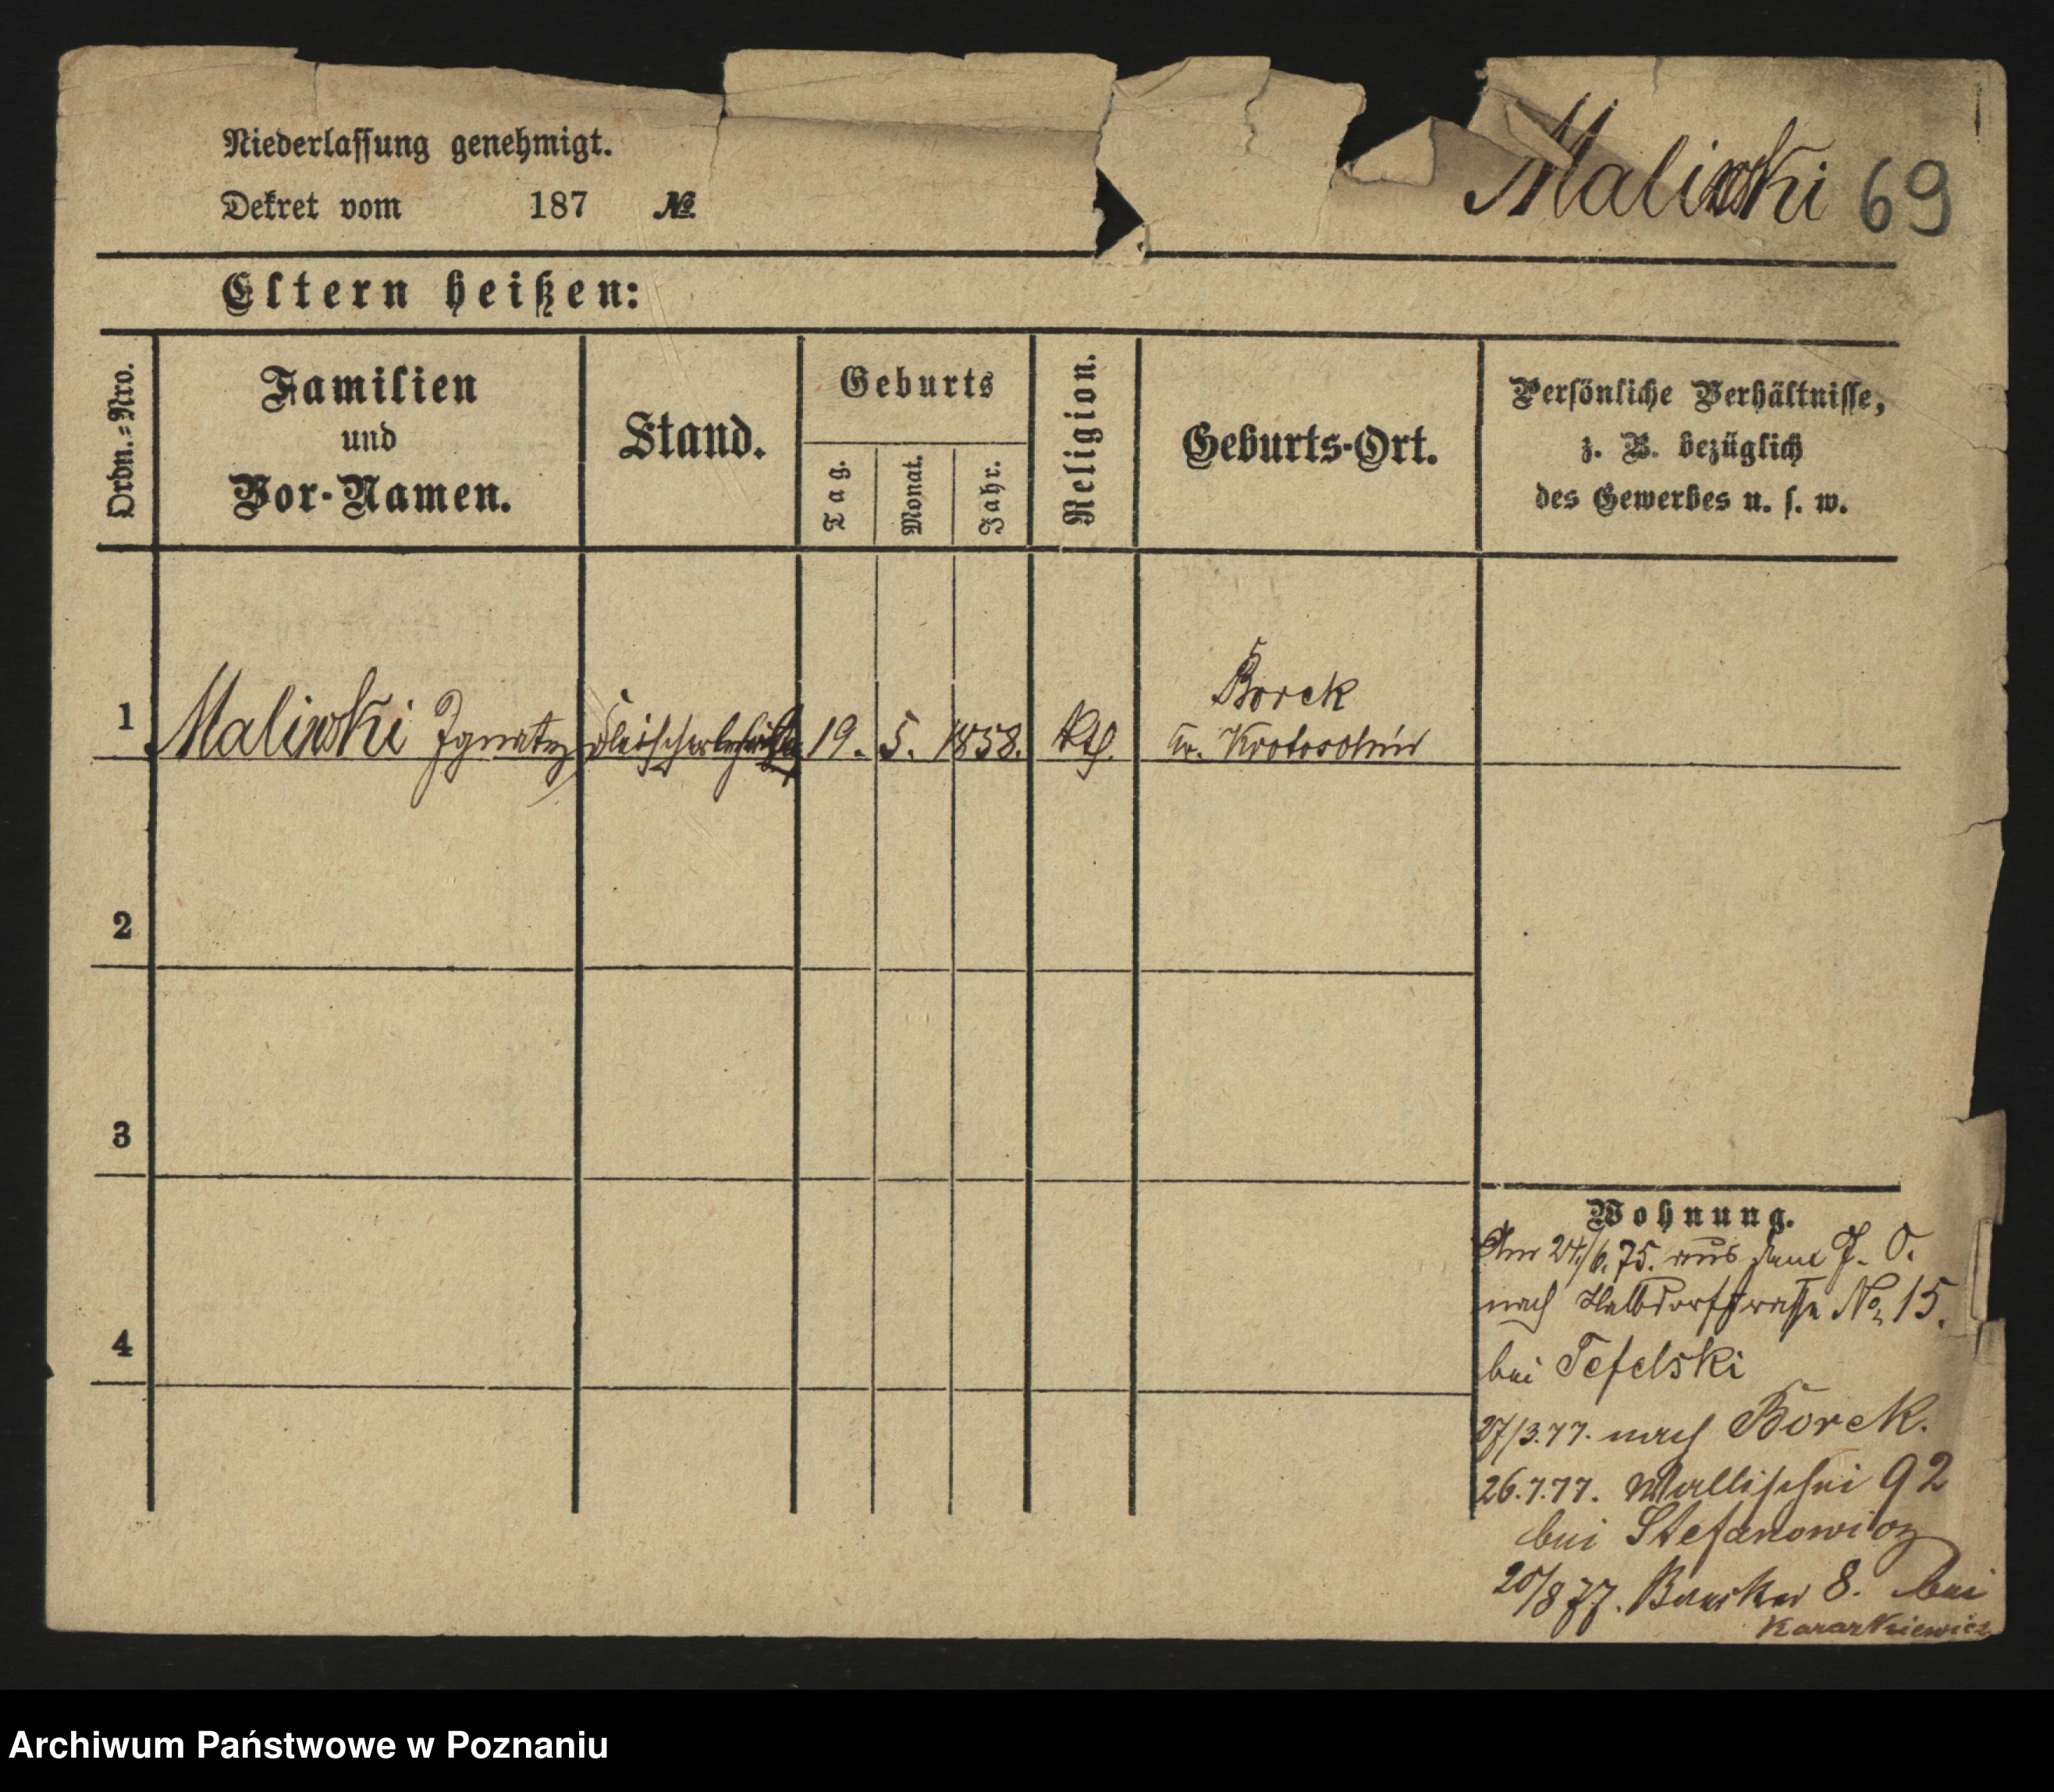 Niederlassung genehmigt.
Dekret vom 187 №
Maliński 69
Eltern heißen:
Ordn.=Nro.
Familien
und
Vor-Namen.
Stand.
Geburts
Tag.
Monat.
Jahr.
Religion.
Geburts-Ort.
Persönliche Verhältnisse,
z. B. bezüglich
des Gewerbes u. s. w.
Borek
1 Ignatz Fleischerlehrling 19. 5. 1858. Kth. Kr. Krotoschin
2
3
4
Wohnung.
Am 24/6. 75. aus dem J. O.
nach Halbdorfstraße No 15.
bei Tefelski
27/3.77. nach Borek.
26.7.77. Wallischei 92
bei Stefanowicz
20/8 77. 8. bei